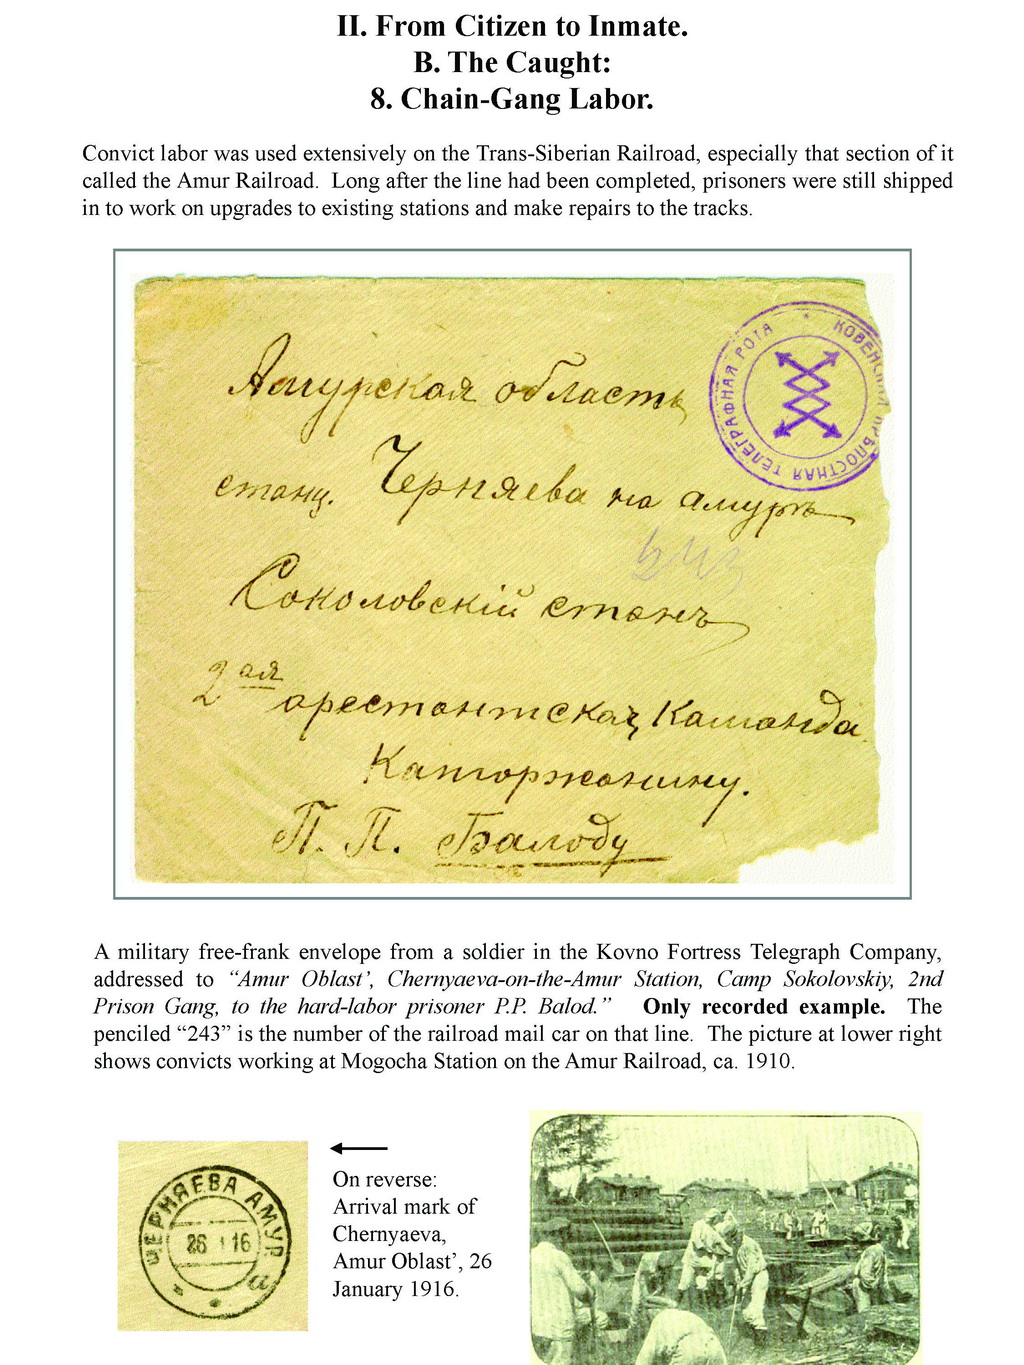 II. From Citizen to Inmate.
B. The Caught:
8. Chain-Gang Labor.
Convict labor was used extensively on the Trans-Siberian Railroad, especially that section of it
called the Amur Railroad. Long after the line had been completed, prisoners were still shipped
in to work on upgrades to existing stations and make repairs to the tracks.
КОВЕНСКАЯ КРѢПОСТНАЯ ТЕЛЕГРАФНАЯ РОТА *
Амурская область
станц. Черняева на амурѣ
Соколовскій станъ
2ая арестантская Команда
Каторжанину.
П. П. Балоду
A military free-frank envelope from a soldier in the Kovno Fortress Telegraph Company,
addressed to “Amur Oblast’, Chernyaeva-on-the-Amur Station, Camp Sokolovskiy, 2nd
Prison Gang, to the hard-labor prisoner P.P. Balod.” Only recorded example. The
penciled “243” is the number of the railroad mail car on that line. The picture at lower right
shows convicts working at Mogocha Station on the Amur Railroad, ca. 1910.
ЧЕРНЯЕВА АМУР.
26 1 16
а
On reverse:
Arrival mark of
Chernyaeva,
Amur Oblast’, 26
January 1916.